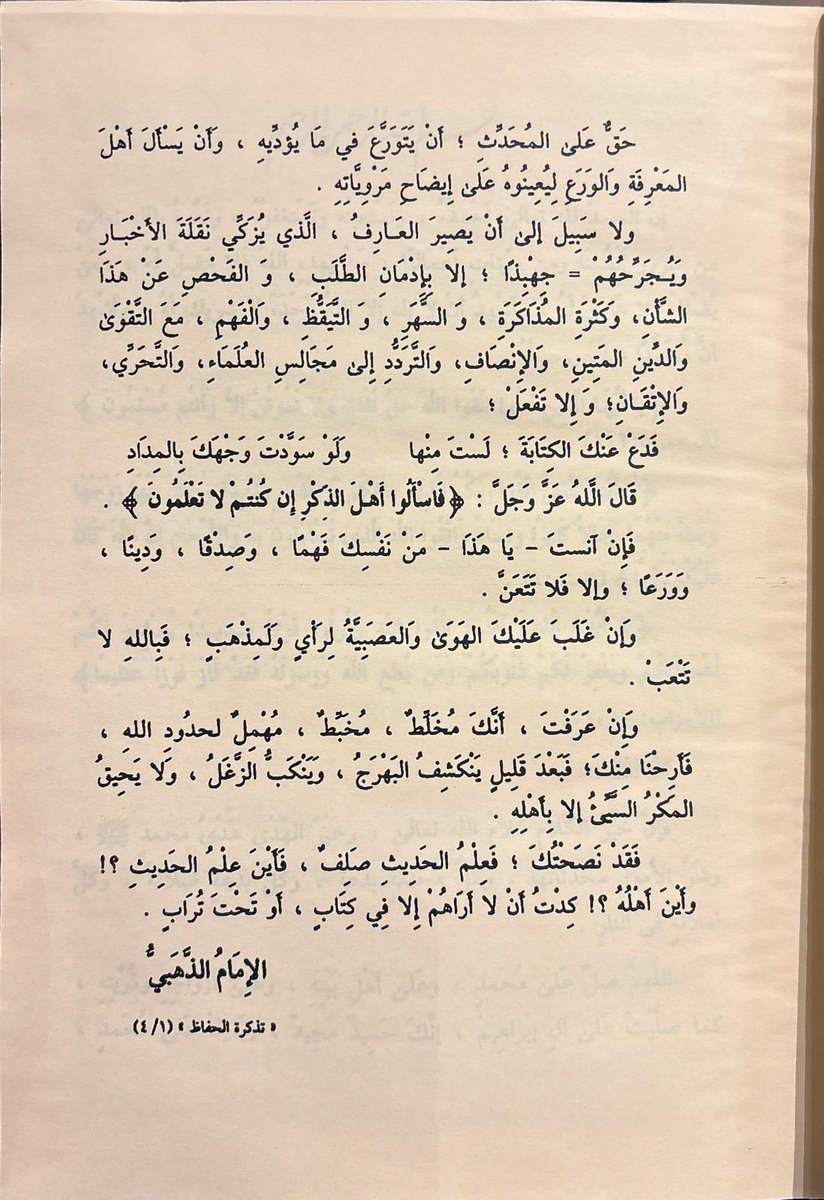 حَقٌّ عَلىٰ المُحَدِّثِ ؛ أَنْ يَتَوَرَّعَ في مَا يُؤدِّيهِ ، وَأَنْ يَسْأَلَ أَهْلَ
المَعْرِفَةِ وَالوَرَعِ لِيُعِينُوهُ عَلىٰ إِيضَاحِ مَرْوِيَّاتِهِ .
ولا سَبِيلَ إلىٰ أَنْ يَصِيرَ العَـارِفُ ، الَّذي يُزَكِّي نَقَلَةَ الأَخْبَـارِ
وَيُـجَرِّحُهُمْ = جِهْبِذًا ؛ إلا بِإدْمَانِ الطَّلَبِ ، وَ الفَحْصِ عَنْ هَذَا
الشَّأْنِ، وَكَثْرَةِ المُذَاكَرَةِ ، وَ السَّهَرِ ، وَ التَّيَقُّظِ ، وَالْفَهْمِ ، مَعَ التَّقْوَىٰ
وَالدِّينِ المَتِينِ، وَالإِنْصَافِ، وَالتَّرَدُّدِ إلىٰ مَجَالِسِ العُلَمَاءِ، وَالتَّحَرِّي،
وَالإِتْقَـانِ؛ وَ إلا تَفْعَلْ ؛
فَدَعْ عَنْكَ الكِتَابَةَ ؛ لَسْتَ مِنْها وَلَوْ سَوَّدْتَ وَجْهَكَ بِالمِدَادِ
قَالَ اللَّهُ عَزَّ وَجَلَّ : ﴿ فَاسْأَلُوا أَهْلَ الذِّكْرِ إِن كُنتُـمْ لا تَعْلَمُونَ ﴾ .
فَإِنْ آنستَ – يَا هَذَا – مَنْ نَفْسِكَ فَهْمًا ، وَصِدْقًا ، وَدِينًا ،
وَوَرَعًا ؛ وإلا فَلا تَتَعَنَّ .
وَإِنْ غَلَبَ عَلَيْكَ الهَوَىٰ وَالعَصَبِيَّةُ لِرَأْيٍ وَلَمِذْهَبٍ ؛ فَبِاللهِ لا
تَتْعَبْ .
وَإِنْ عَرَفْتَ ، أَنَّكَ مُخَلِّطٌ ، مُخَبِّطٌ ، مُهْمِلٌ لحدُودِ اللهِ ،
فَأَرِحْنَا مِنْكَ؛ فَبَعْدَ قَلِيلٍ يَنْكَشِفُ البَهْرَجُ ، وَيَنْكَبُّ الزَّغَلُ ، وَلا يَحِيقُ
المَكْرُ السَّيِّئُ إلا بِأَهْلِهِ .
فَقَدْ نَصَحْتُكَ ؛ فَعِلْمُ الحَدِيثِ صَلِفٌ ، فَأَيْنَ عِلْمُ الحَدِيثِ ؟!
وأَيْنَ أَهْلُهُ ؟! كِدْتُ أَنْ لا أَرَاهُمْ إلا فِي كِتَابٍ ، أَوْ تَحْتَ تُرَابٍ .
الإِمَامُ الذَّهَبيُّ
« تذكرة الحفاظ » (١/ ٤)